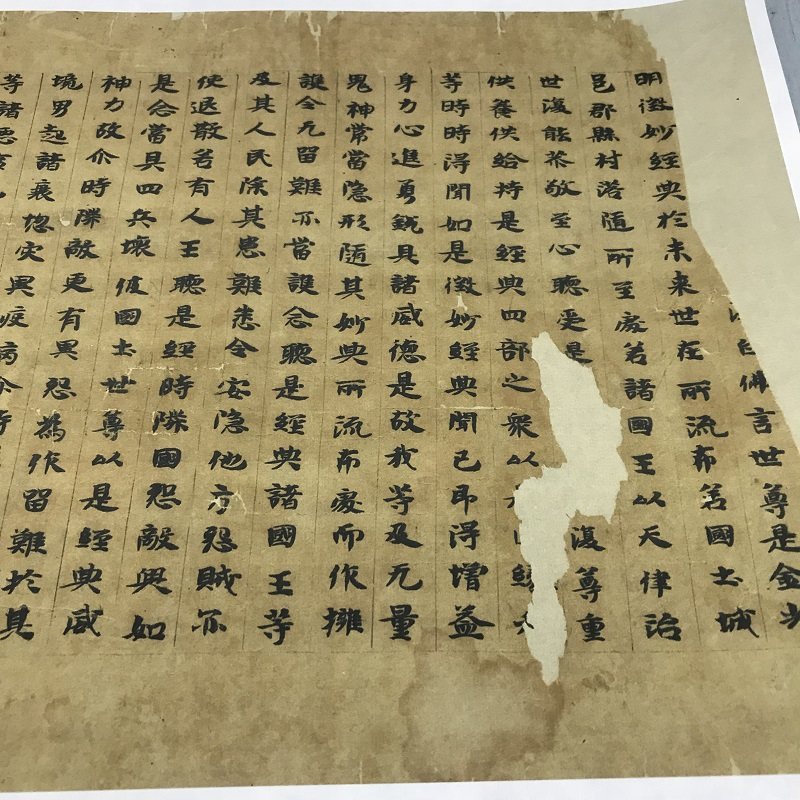 白佛言世尊是金光
明微妙經典於未來世在所流布若國土城
邑郡縣村落隨所至處若諸國王以天律治
世復能恭敬至心聽受是復尊重
供養供給持是經典四部之眾以
等時時得聞如是微妙經典聞已即得增益
身力心進勇銳具諸威德是故我等及无量
鬼神常當隱形隨其妙典所流布處而作擁
護令无留難亦當護念聽是經典諸國王等
及其人民除其患難悉令安隱他方怨賊亦
使退散若有人王聽是經時隣國怨敵興如
是念當具四兵壞彼國土世尊以是經典威
神力故尒時隣敵更有異怨為作留難於其
境界起諸衰惱灾異疫病尒時
等諸惡事